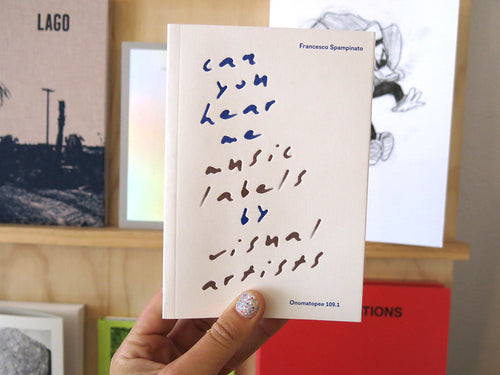 LAGO
Francesco Spampinato
can
you
hear
me
music
labels
by
visual
artists
Onomatopee 109.1
TIONS